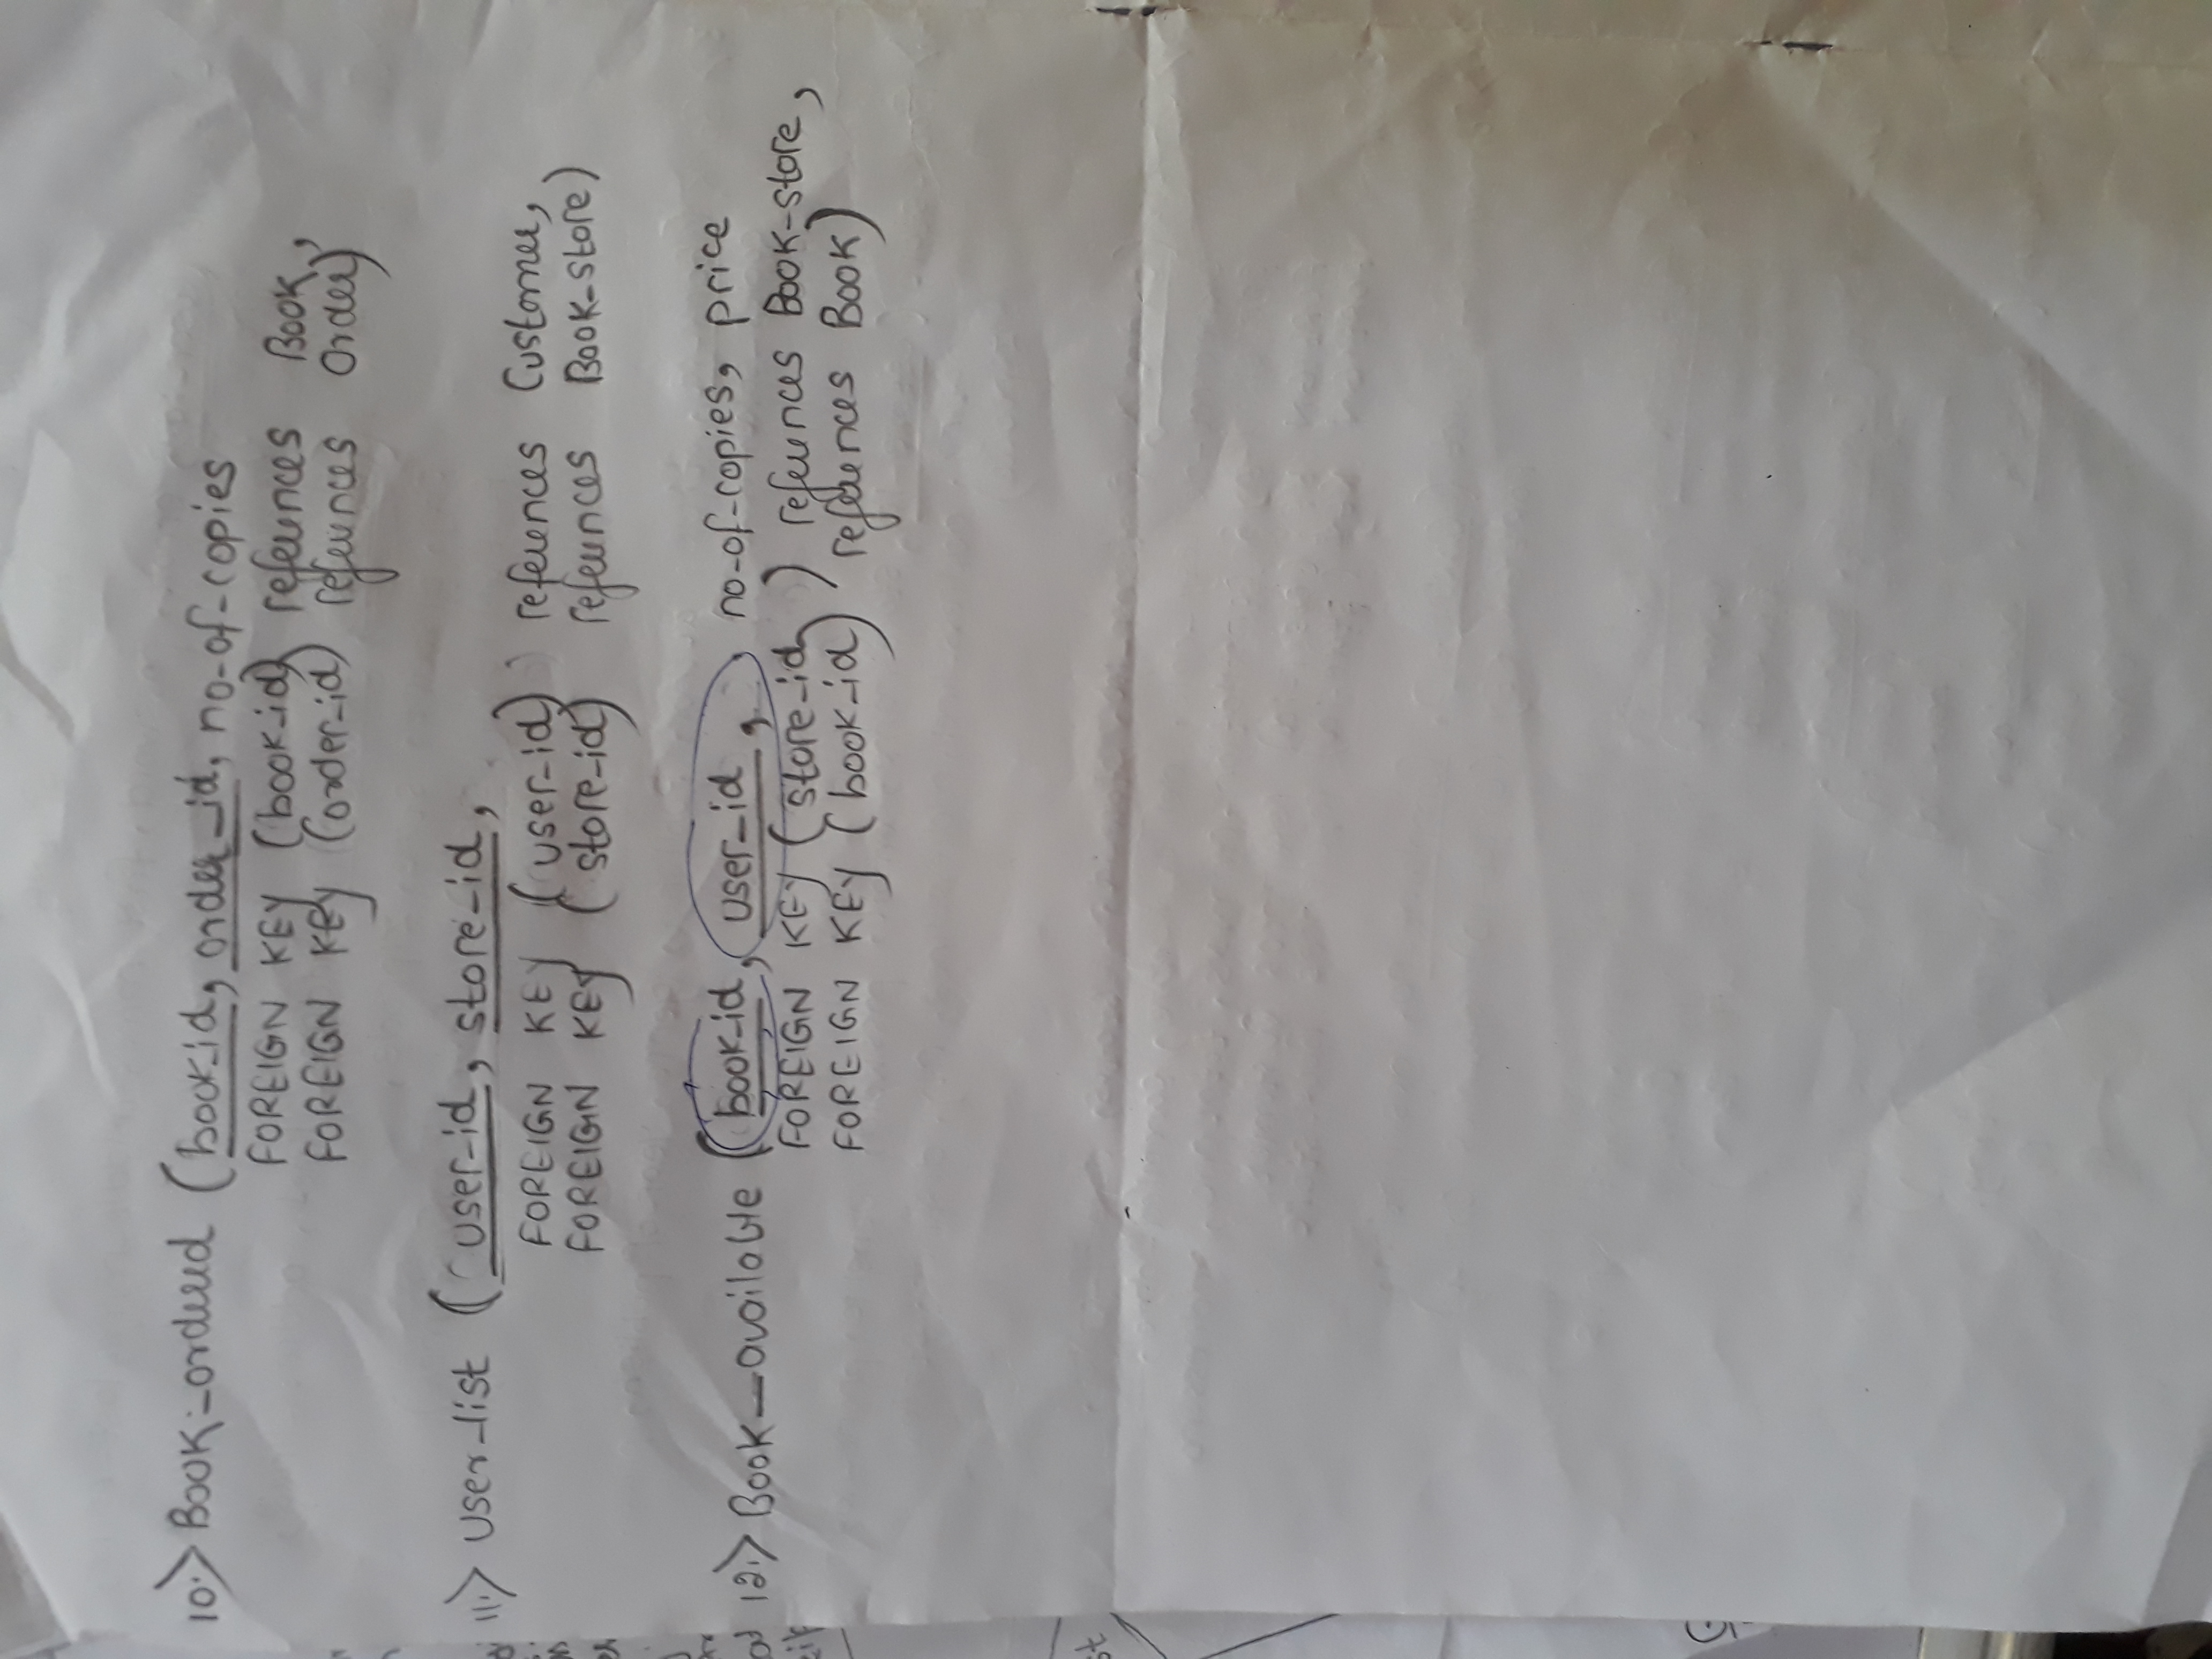 10.> Book-ordered (book_id, order_id, no-of-copies
FOREIGN KEY (book-id) references Book,
FOREIGN KEY (order-id) references Order)
11.> User-list (user-id, store-id,
FOREIGN KEY (user-id) references Customer,
FOREIGN KEY (store-id) references Book-store)
12.> Book-available (book-id, user-id, no-of-copies, price
FOREIGN KEY (store-id) references Book-store,
FOREIGN KEY (book-id) references Book)
st